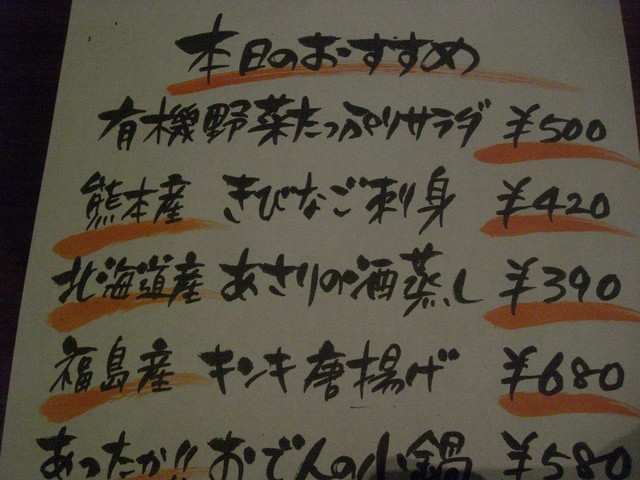 本日のおすすめ
有機野菜たっぷりサラダ ¥500
熊本産 きびなご刺身 ¥420
北海道産 あさりの酒蒸し ¥390
福島産 キンキ唐揚げ ¥680
あったか!! おでんの小鍋 ¥580